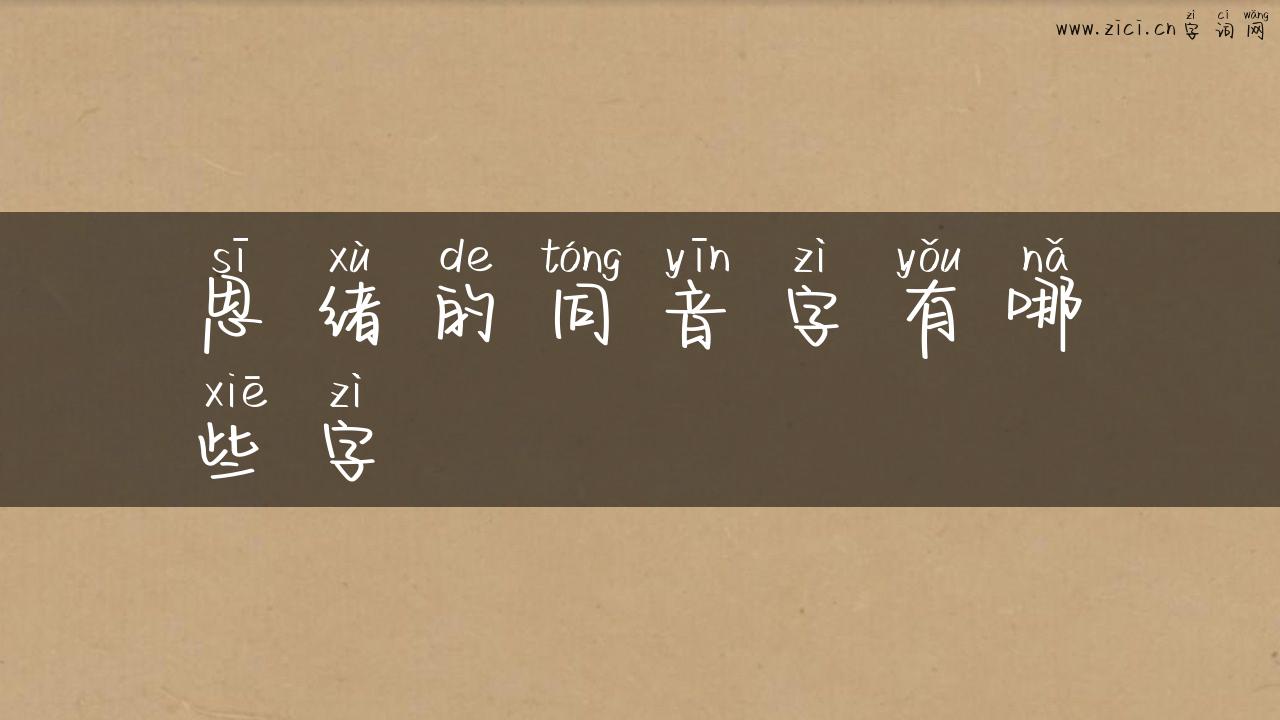 www.zici.cn 字词网
zì cí wǎng
sī xù de tóng yīn zì yǒu nǎ
思绪的同音字有哪
xiē zì
些字